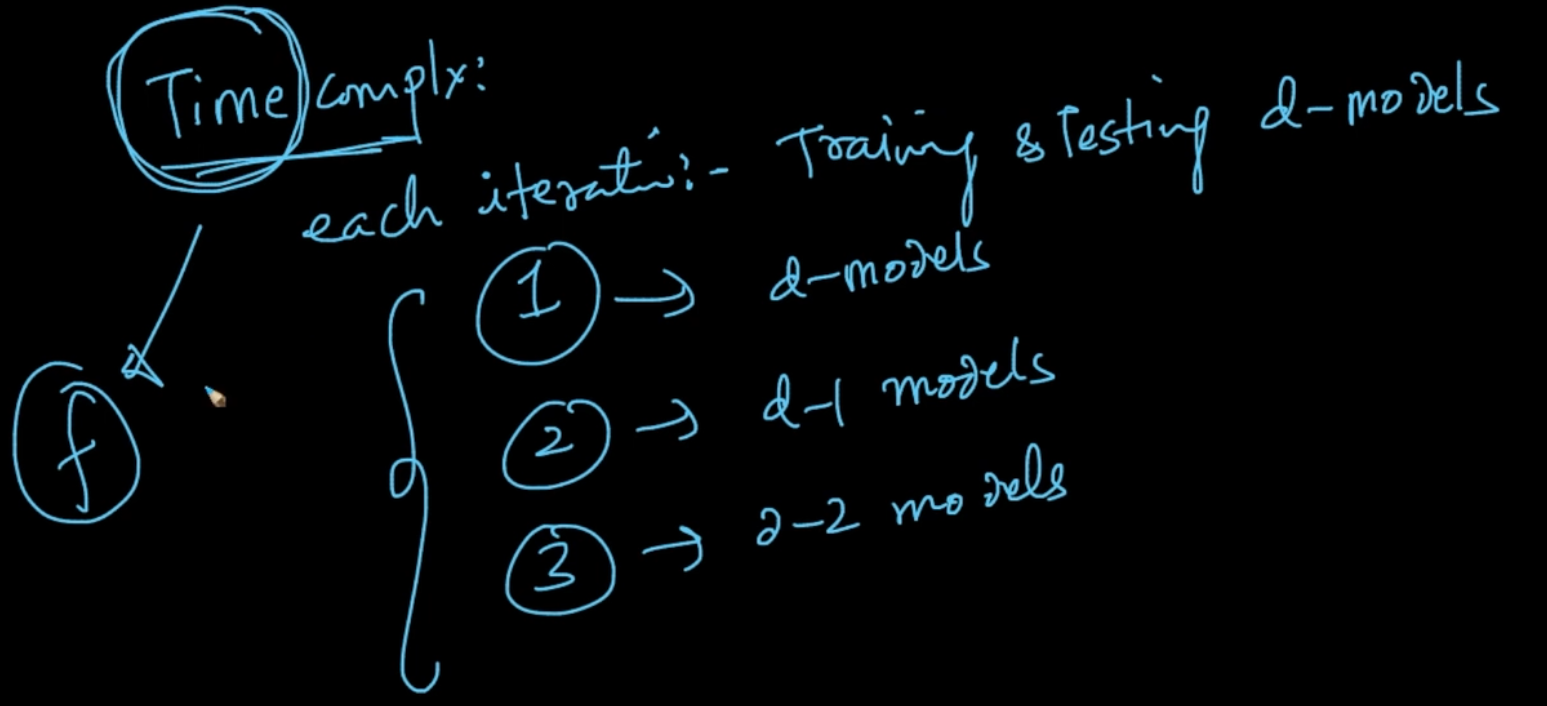 Time complx:
each iteratn:- Training & Testing d-models
1 → d-models
2 → d-1 models
3 → d-2 models
f